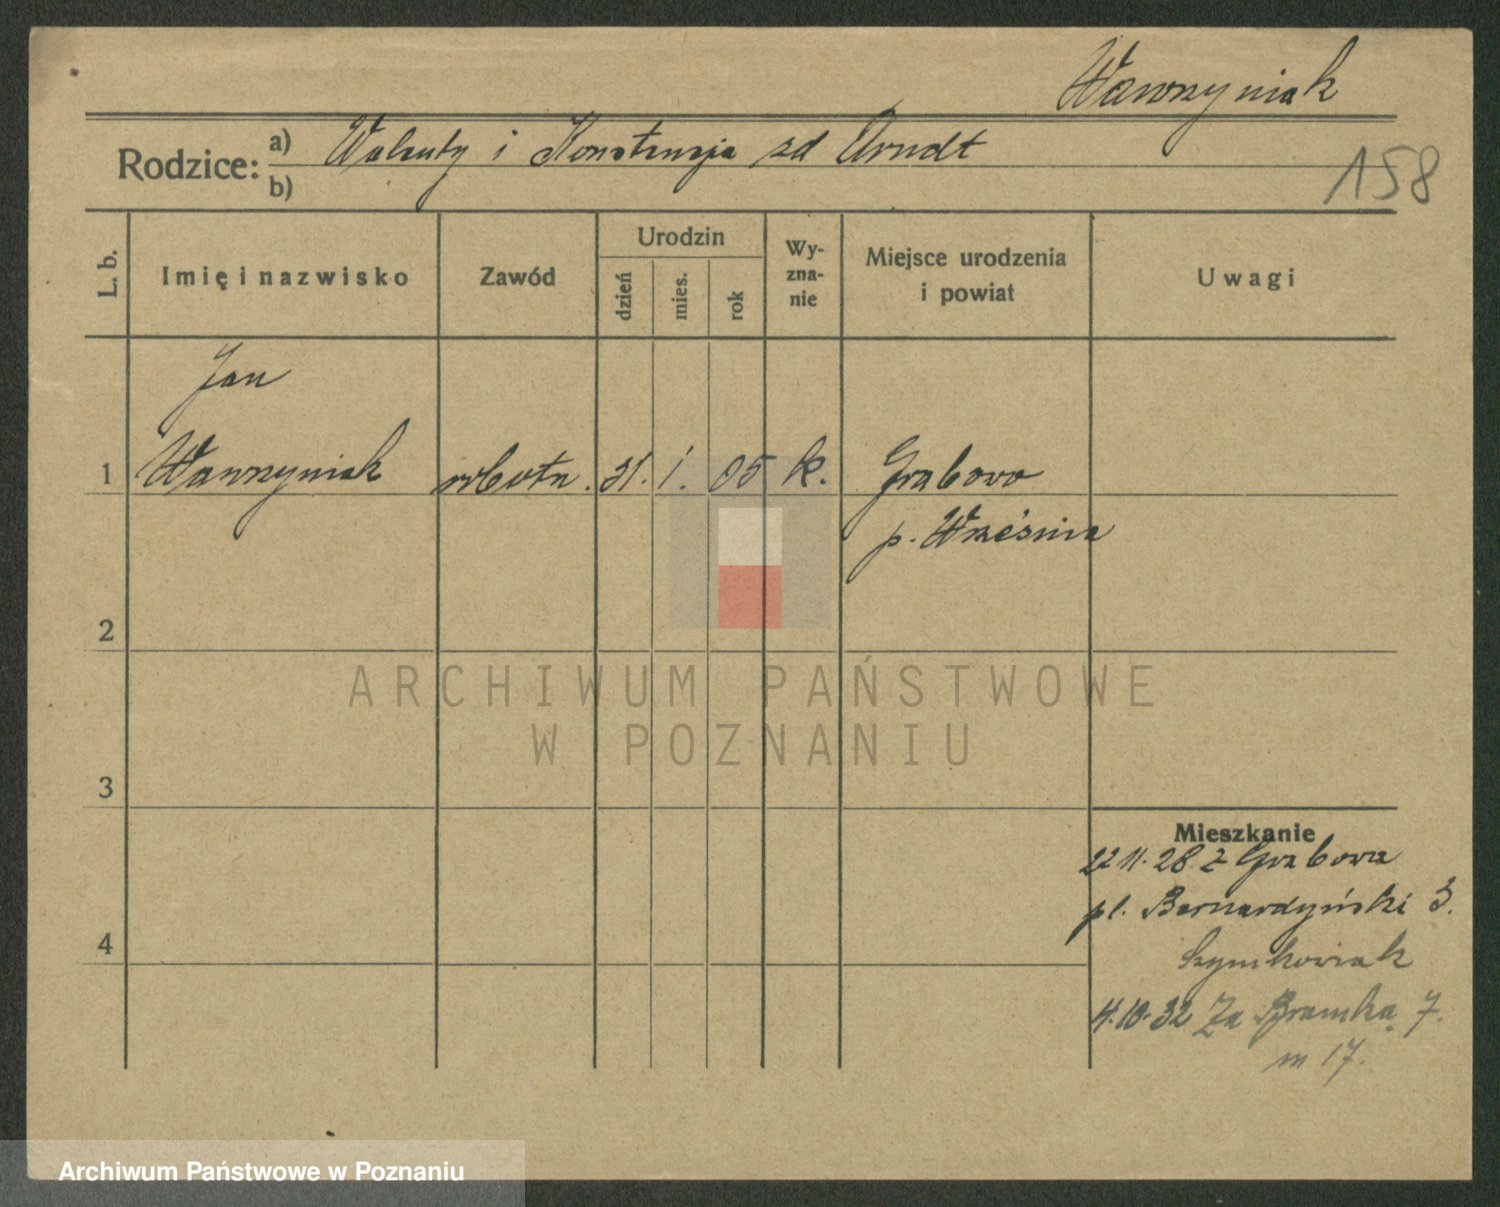 Wawrzyniak
Rodzice: a) Walenty i Konstancja zd Arndt
b)
158
L. b.
Imię i nazwisko
Zawód
Urodzin
dzień
mies.
rok
Wy-
zna-
nie
Miejsce urodzenia
i powiat
Uwagi
Jan
1 Wawrzyniak robotn. 31. 1. 05 k. Grabowo
p. Września
2
3
4
Mieszkanie
22 11. 28. z Grabowa
pl. Bernardyński 3.
Szymkowiak
4. 10. 32 Za Bramką 7.
m 17.
ARCHIWUM PAŃSTWOWE
W POZNANIU
Archiwum Państwowe w Poznaniu